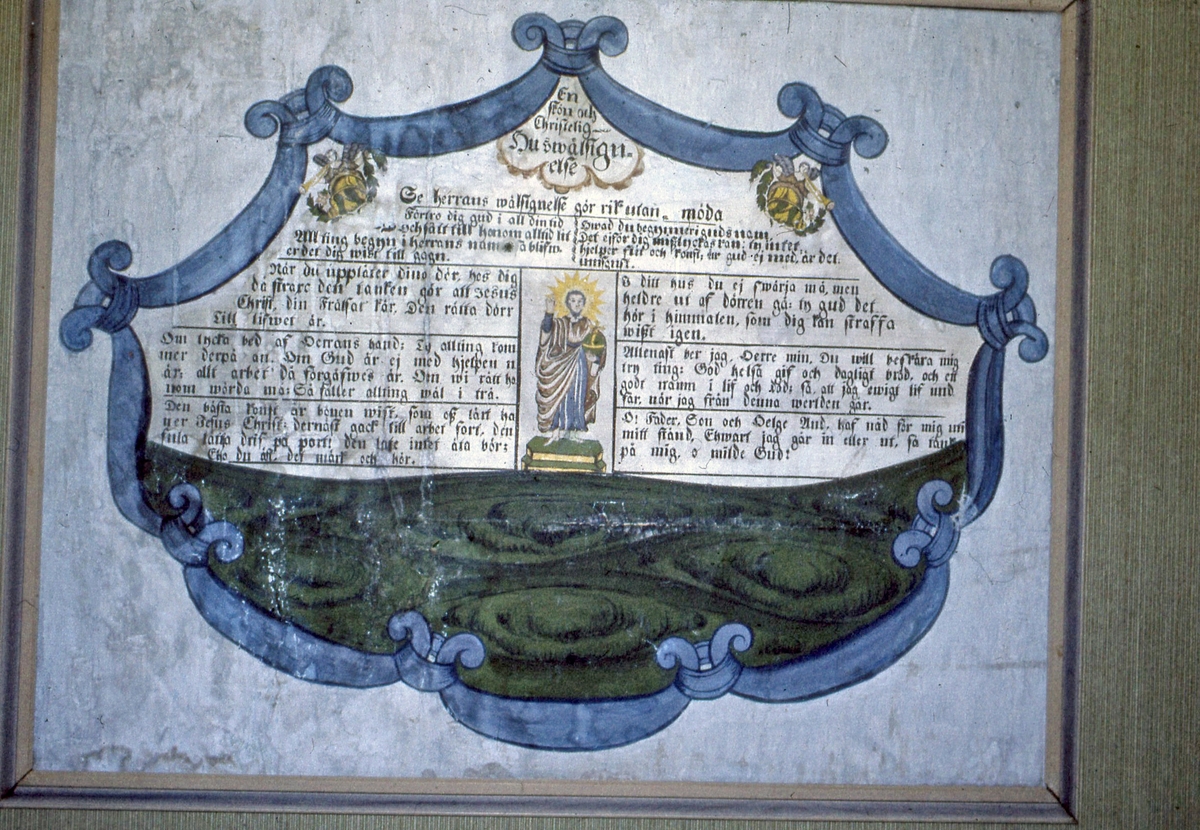 En
skön och
Christelig
Huswälsignelse
Se herrans wälsignelse gör rik utan möda
Förtro dig gud i all din tid
Och sätt till honom alltid lit
All ting begyn i herrans namn så blifwr
er det dig wist till gagn.
Hwad du begynner i guds namn
Det ej för dig misslyckas kan: ty intet
hjelper flit och konst: är gud ej med, är det
umsonst.
När du upplåter dine dör, hos dig
då straxe den tanken gör att Jesus
Christ, din Frälsar kär, Den rätta dörr
till lifwet är.
Om lycka bed af Herrans hand: Ty allting kom
mer derpå an. Om Gud är ej med hjelpen n
är, allt arbet då förgäfwes är. Om wi rätt ho
nom wörda må: Så faller allting wäl i trå.
Den bästa konst är bönen wist, som oss lärt ha
wer Jesus Christ: dernäst gack till arbet fort, den
fula lättja drif på port: den late intet äta bör:
Eho du äst, det märk och hör.
I ditt hus du ej swörja må, men
heldre ut af dörren gå: ty gud det
hör i himmalen, som dig kan straffa
wisst igen.
Allenast ber jag, Herre min, Du will beskära mig
try ting: God helsa gif och dagligt bröd, och ett
godt namn i lif och död: så, att jag ewigt lif und
får, när jag från denna werlden går.
O! Fader, Son och Helge And, haf nåd för mig uti
mitt stånd, Ehwart jag går in eller ut, så tänk
på mig, o milde Gud!